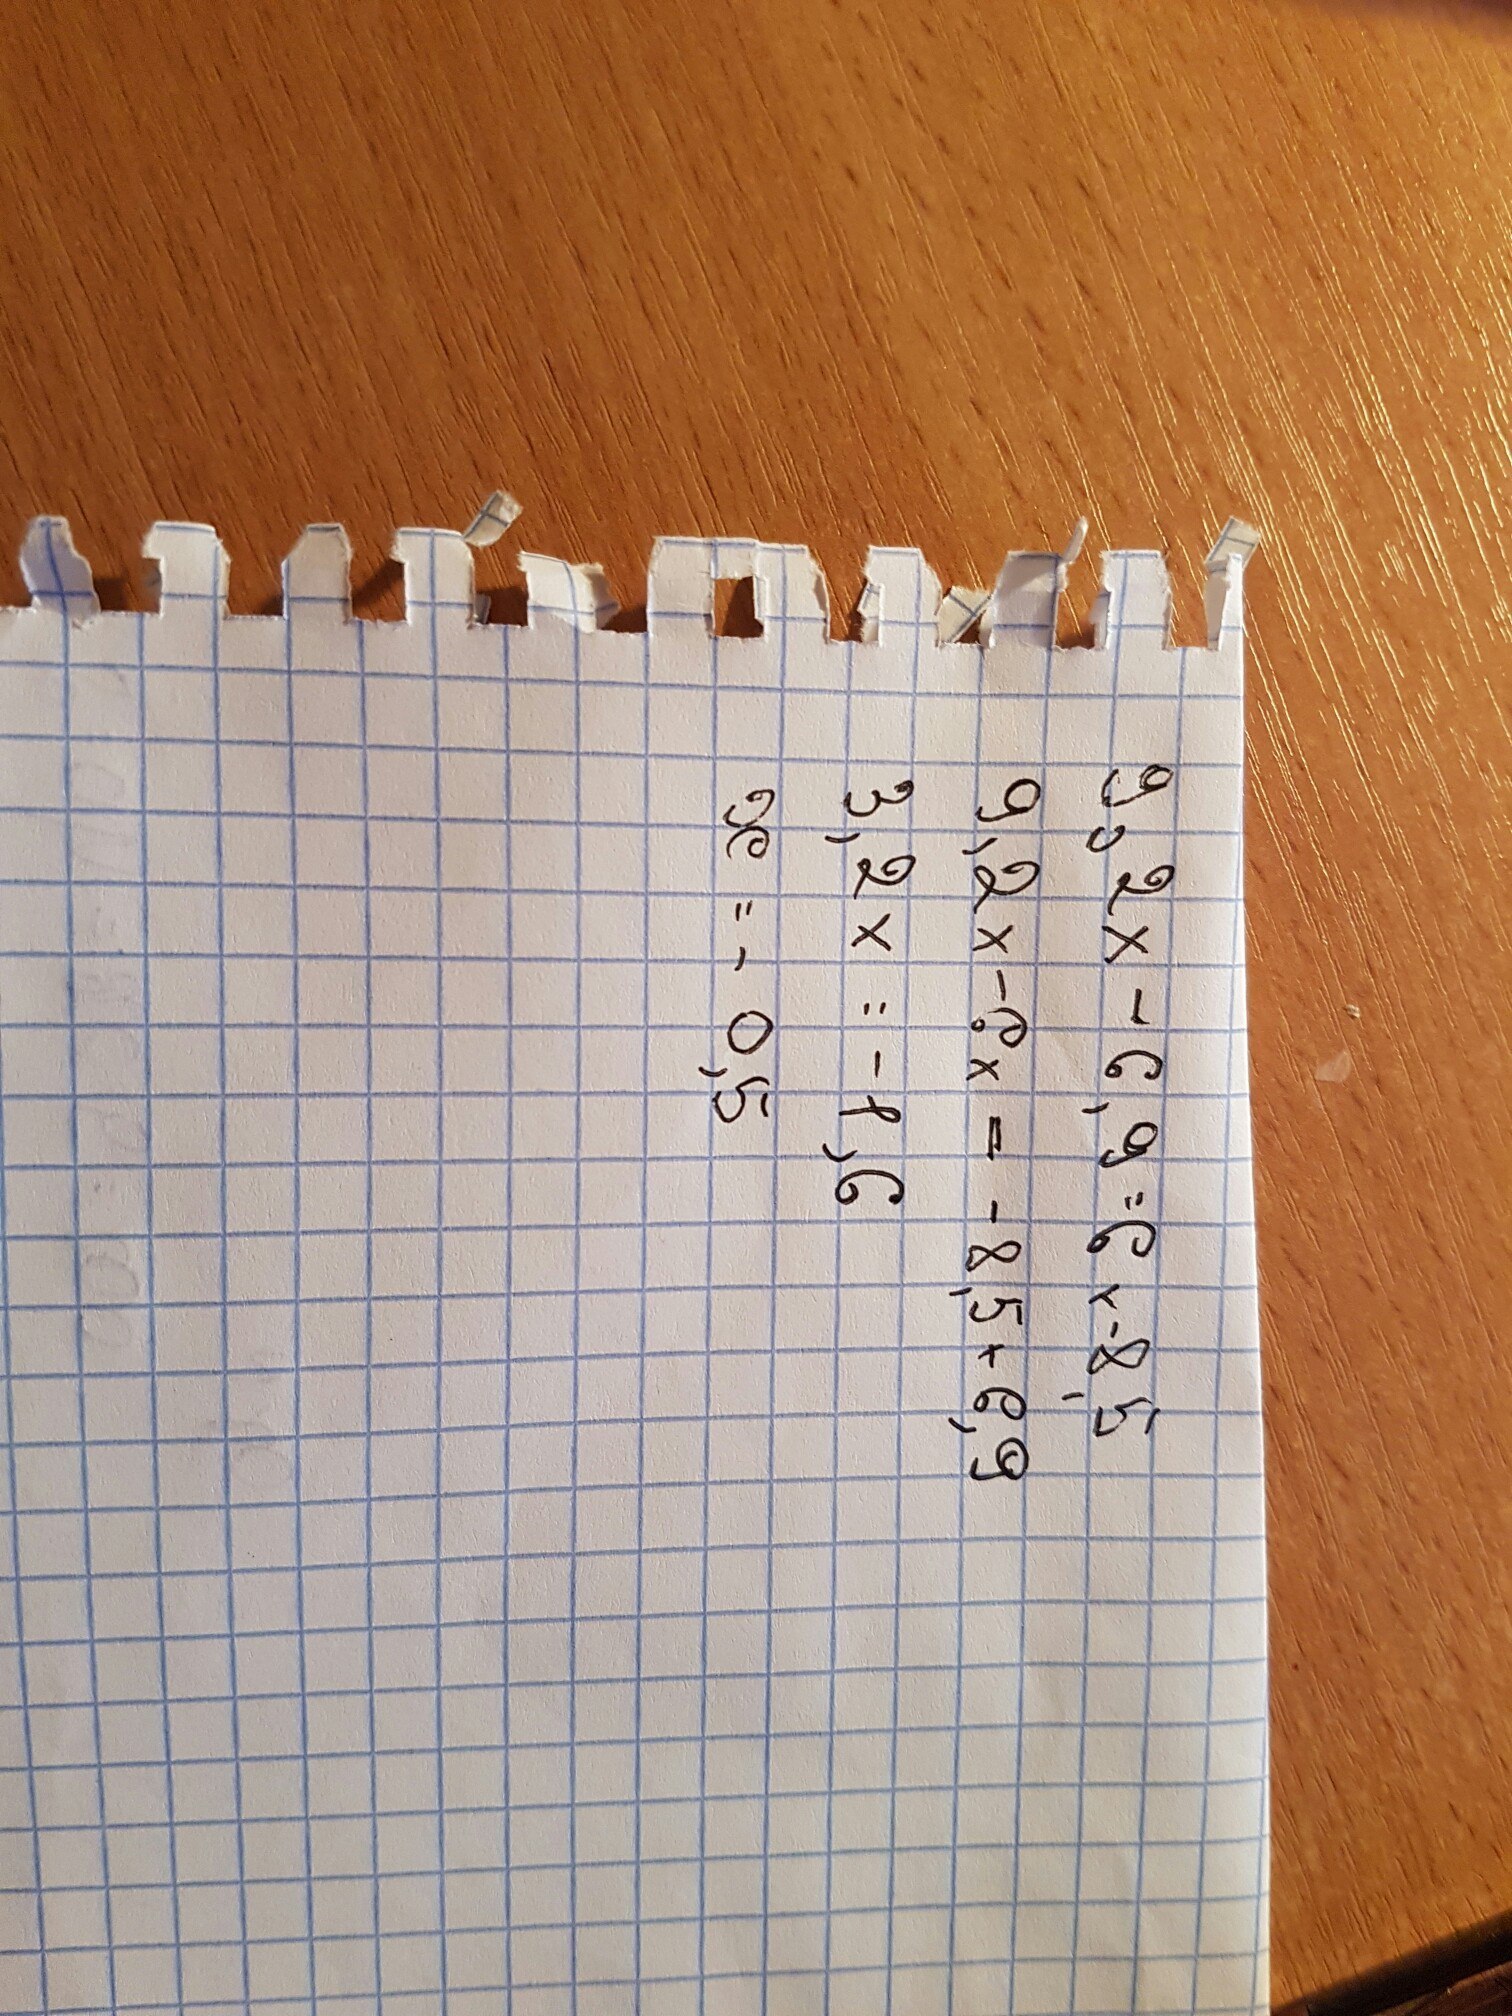 9,2x - 6,9 = 6x - 8,5
9,2x - 6x = -8,5 + 6,9
3,2x = -1,6
x = -0,5